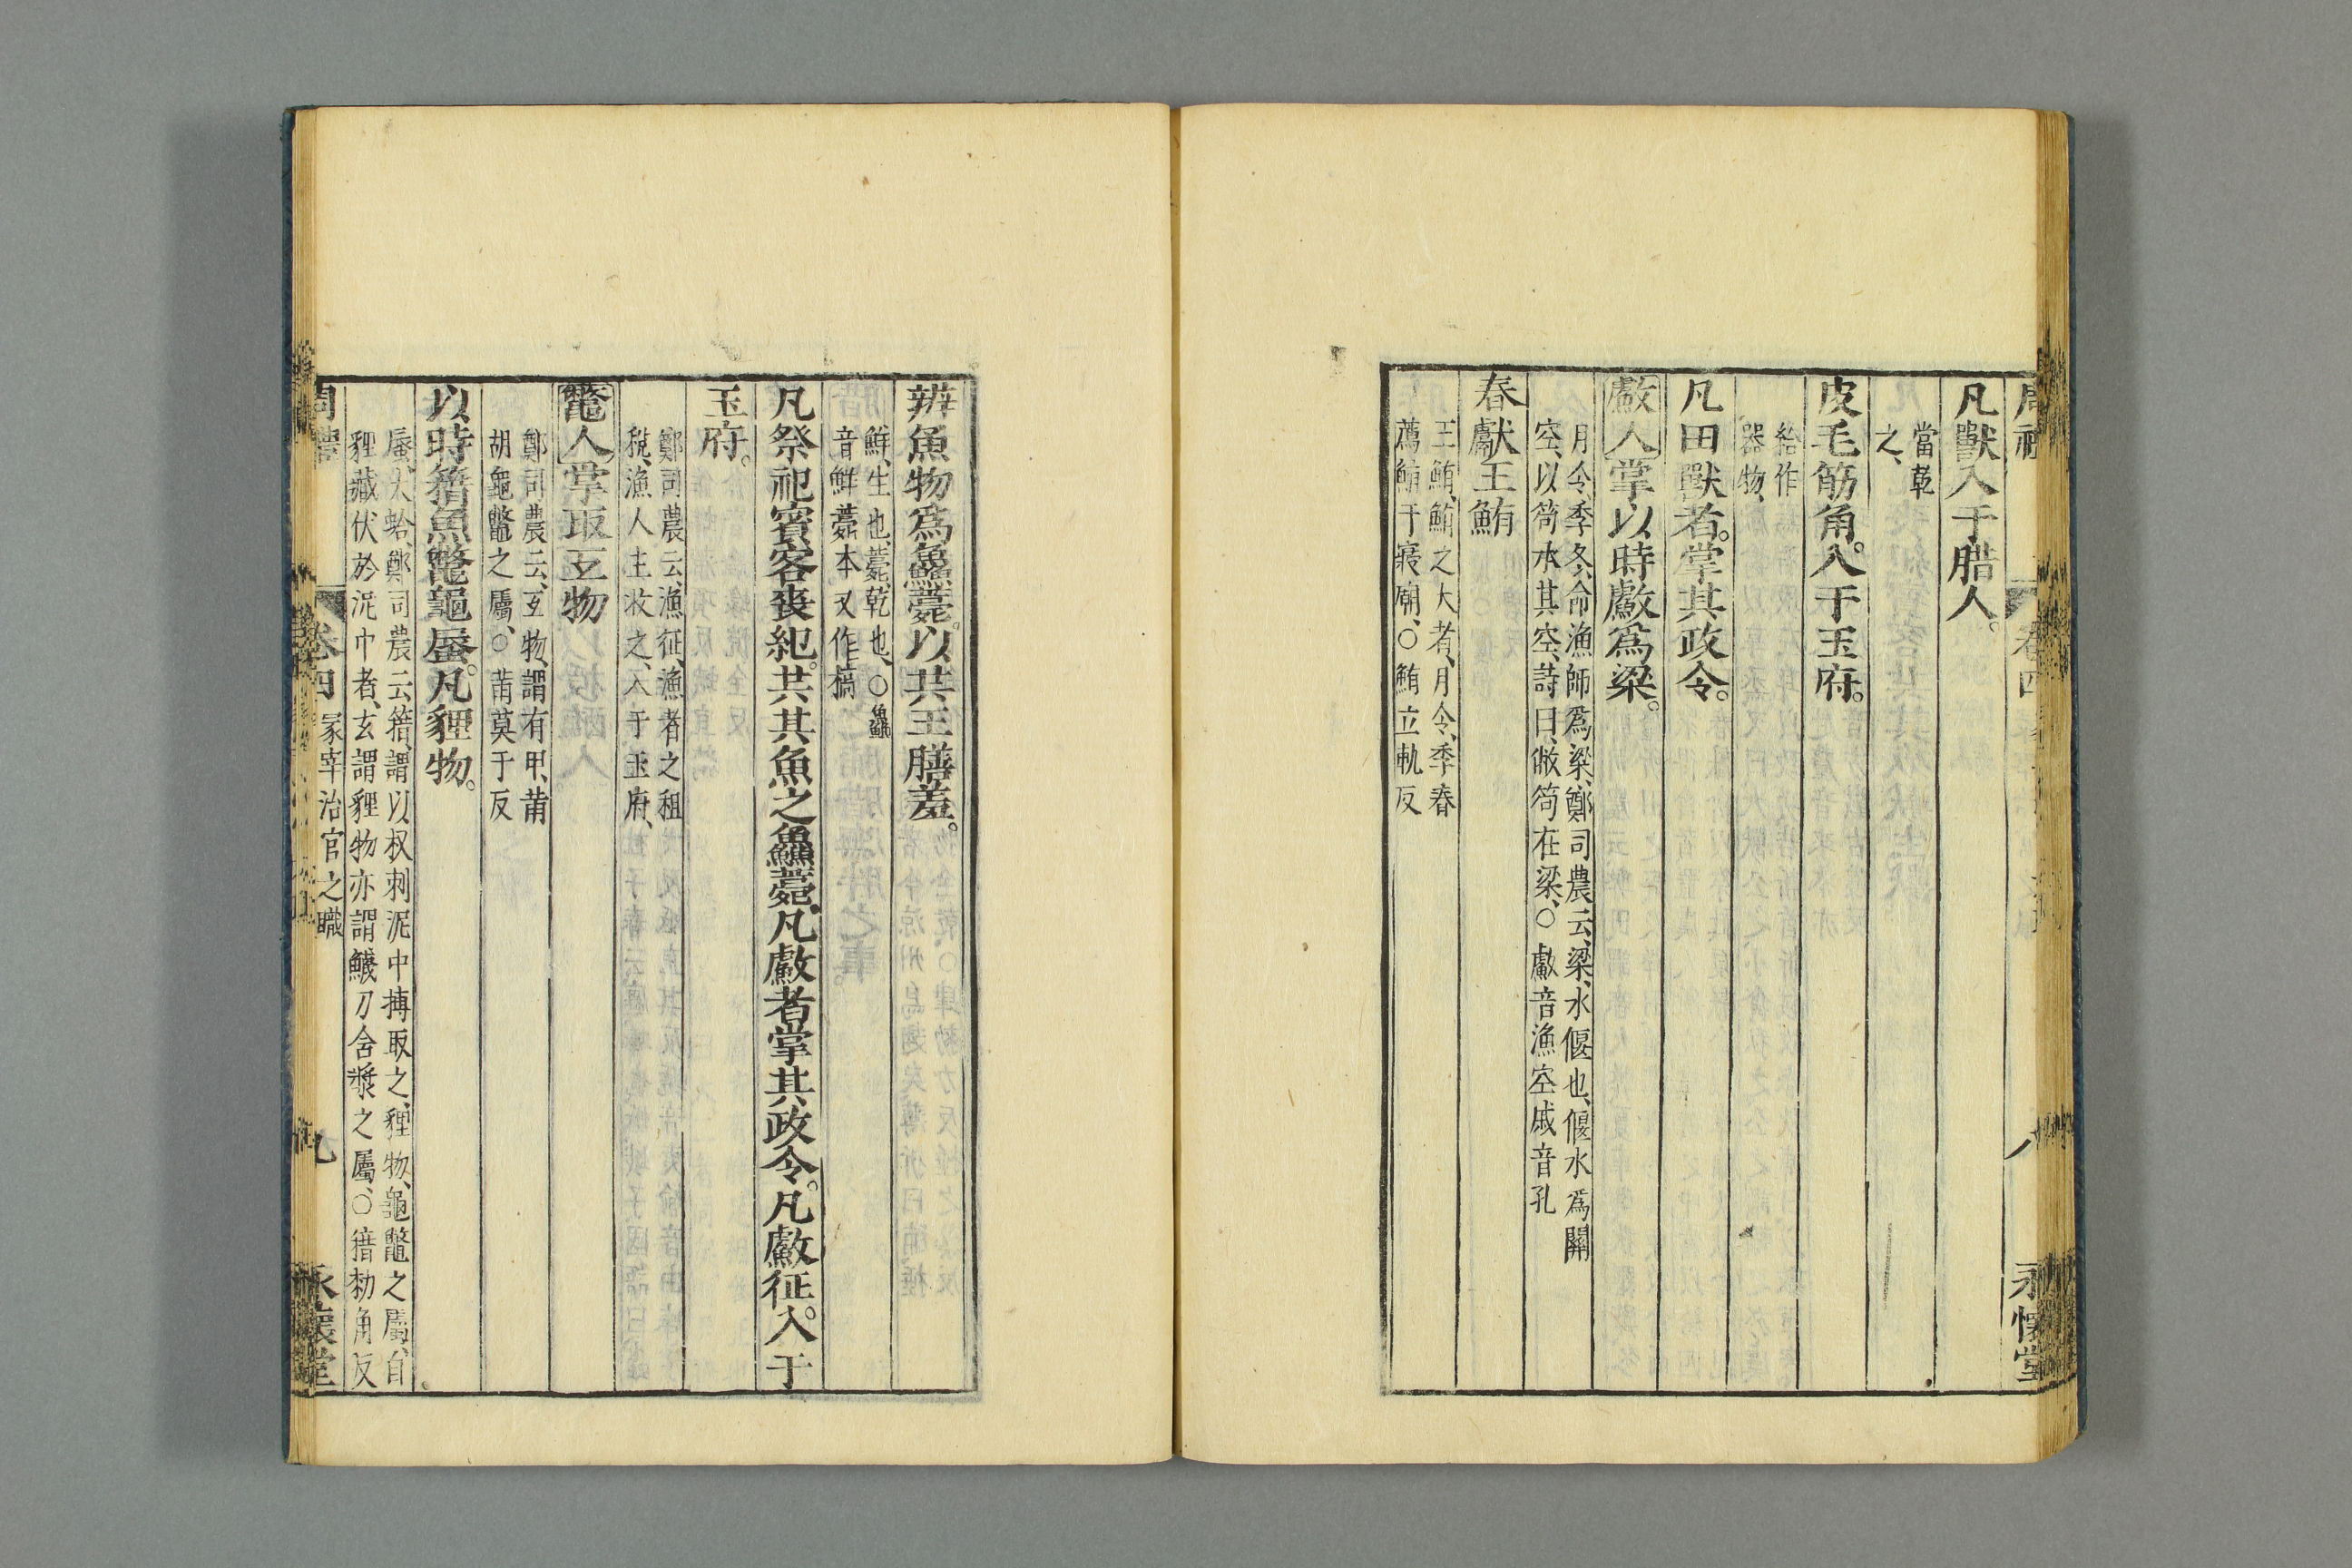 凡獸入于腊人。
當乾
之、
皮毛筋角。入于玉府。
給作
器物、
凡田獸者。掌其政令。
䱷人掌以時䱷爲梁。
月令、季冬、命漁師爲梁、鄭司農云、梁、水偃也、偃水爲關
空、以笱承其空、詩曰、敝笱在梁、○䱷音漁空戚音孔
春獻王鮪
王鮪、鮪之大者、月令、季春
薦鮪于寢廟、○鮪立軌反
永懷堂
辨魚物爲鱻薧。以共王膳羞。
鮮、生也、薧、乾也、○鱻
音鮮薧本又作槁
凡祭祀賓客喪紀。共其魚之鱻薧。凡䱷者掌其政令。凡䱷征。入于
玉府。
鄭司農云、漁征、漁者之租
稅、漁人主收之、入于玉府、
鼈人掌取互物
鄭司農云、互物、謂有甲、㒼
胡龜鼈之屬、○㒼莫于反
以時籍魚鼈龜蜃。凡貍物。
蜃、大蛤、鄭司農云、籍、謂以杈刺泥中搏取之、貍物、龜鼈之屬、自
貍藏伏於泥中者、玄謂貍物亦謂鱴刀含漿之屬、○籍勑角反
周禮 卷四 冢宰治官之職 九 永懷堂